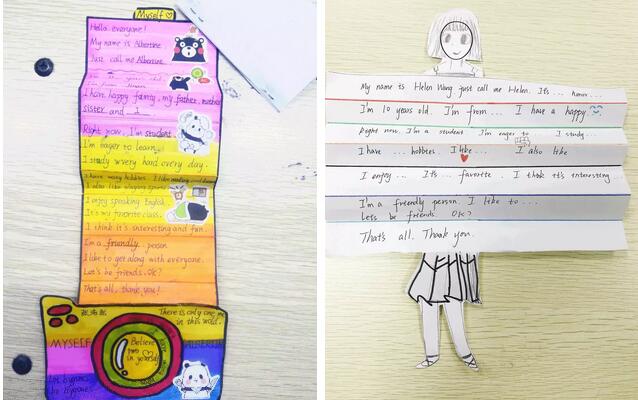 Myself
Hello everyone!
My name is Albertine
Just call me Albertine
I have happy family, my father, mother
sister and I
Right now, I'm student
I'm eager to learn
I study very hard every day.
I have many hobbies. I like reading
I also like playing sports
I enjoy speaking English
It's my favorite class.
I think it's interesting and fun
I'm a friendly person
I like to get along with everyone.
Let's be friends. OK?
That's all, thank you!
There is only one me
in this world.
MYSELF
Believe
in yourself
My name is Helen Wang just call me Helen. It's ...
I'm 10 years old. I'm from... I have a happy
Right now, I'm a student I'm eager to I study...
I have ... hobbies. I like... I also like
I enjoy ... It's ... favorite. I think it's interesting
I'm a friendly person. I like to ...
Let's be friends. OK?
That's all. Thank you.